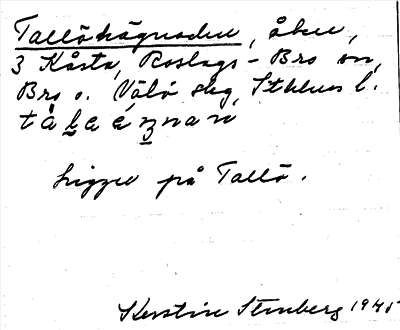 Tallöhägnaden, åker,
3 Kårsta, Roslags-Bro sn,
Bro o. Väto skg, Sthlms l.
Ligger på Tallö.
Kerstin Stenberg 1945